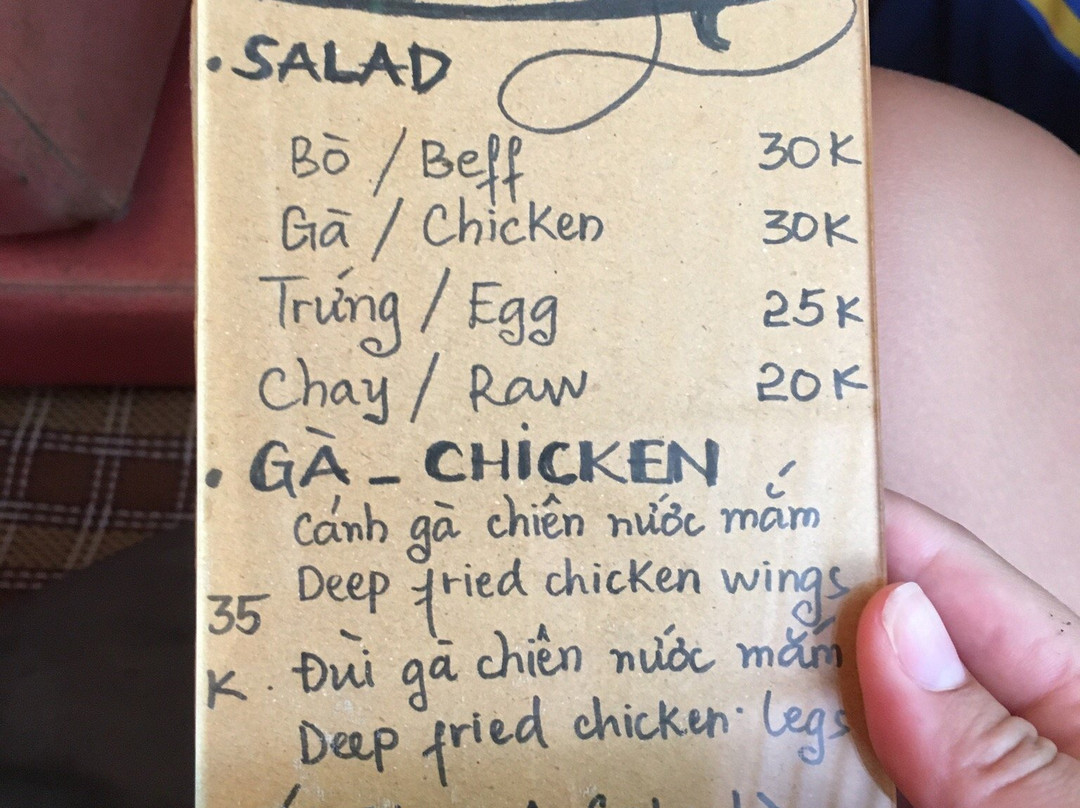 • SALAD
Bò / Beff 30K
Gà / Chicken 30K
Trứng / Egg 25K
Chay / Raw 20K
• GÀ - CHICKEN
Cánh gà chiên nước mắm
Deep fried chicken wings
35
K. Đùi gà chiên nước mắm
Deep fried chicken legs